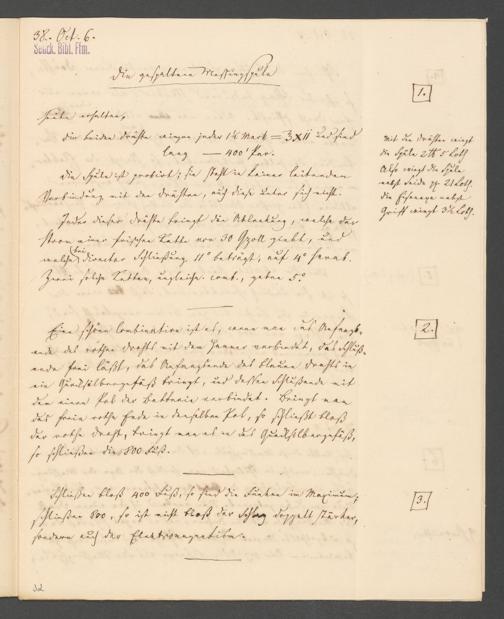 38. Oct. 6.
Senck. Bibl. Ffm.
Die gespaltene Messingspule
heute erhalten,
die beiden Drähte wiegen jeder 1½ Mark = ℥XII und sind
lang — 400' Par.
Die Spule ist probirt; sie steht in keiner leitenden
Verbindung mit den Drähten, auch diese unter sich nicht.
Jeder dieser Drähte bringt die Ablenkung, welche der
Strom einer frischen Kette von 30 □zoll giebt, und
welche bei directer Schließung 11° beträgt, auf 4° herab.
Zwei solche Ketten, ungleiche comb., geben 5°.
Eine schöne Combination ist es, wenn man das Anfangs-
ende des rothen Drahts mit dem Hammer verbindet, das Schluß-
ende frei läßt, das Anfangsende des blauen Drahts in
ein Quecksilbergefäß bringt, und dessen Schlußende mit
dem einen Pol der Batterie verbindet. Bringt man
das freie rothe Ende in denselben Pol, so schließt bloß
der rothe Draht, bringt man es in das Quecksilbergefäß,
so schließen die 800 Fuß.
Schließen bloß 400 Fuß, so sind die Funken im Maximum;
schließen 800, so ist nicht bloß der Schlag doppelt stärker,
sondern auch der Elektromagnetism.
1.
Mit den Drähten wiegt
die Spule 2 ℔ 5 Loth
Also wiegt die Spule
nebst Seide pp. 21 Loth.
Die Eisenaxe nebst
Griff wiegt 3½ Loth.
2.
3.
32